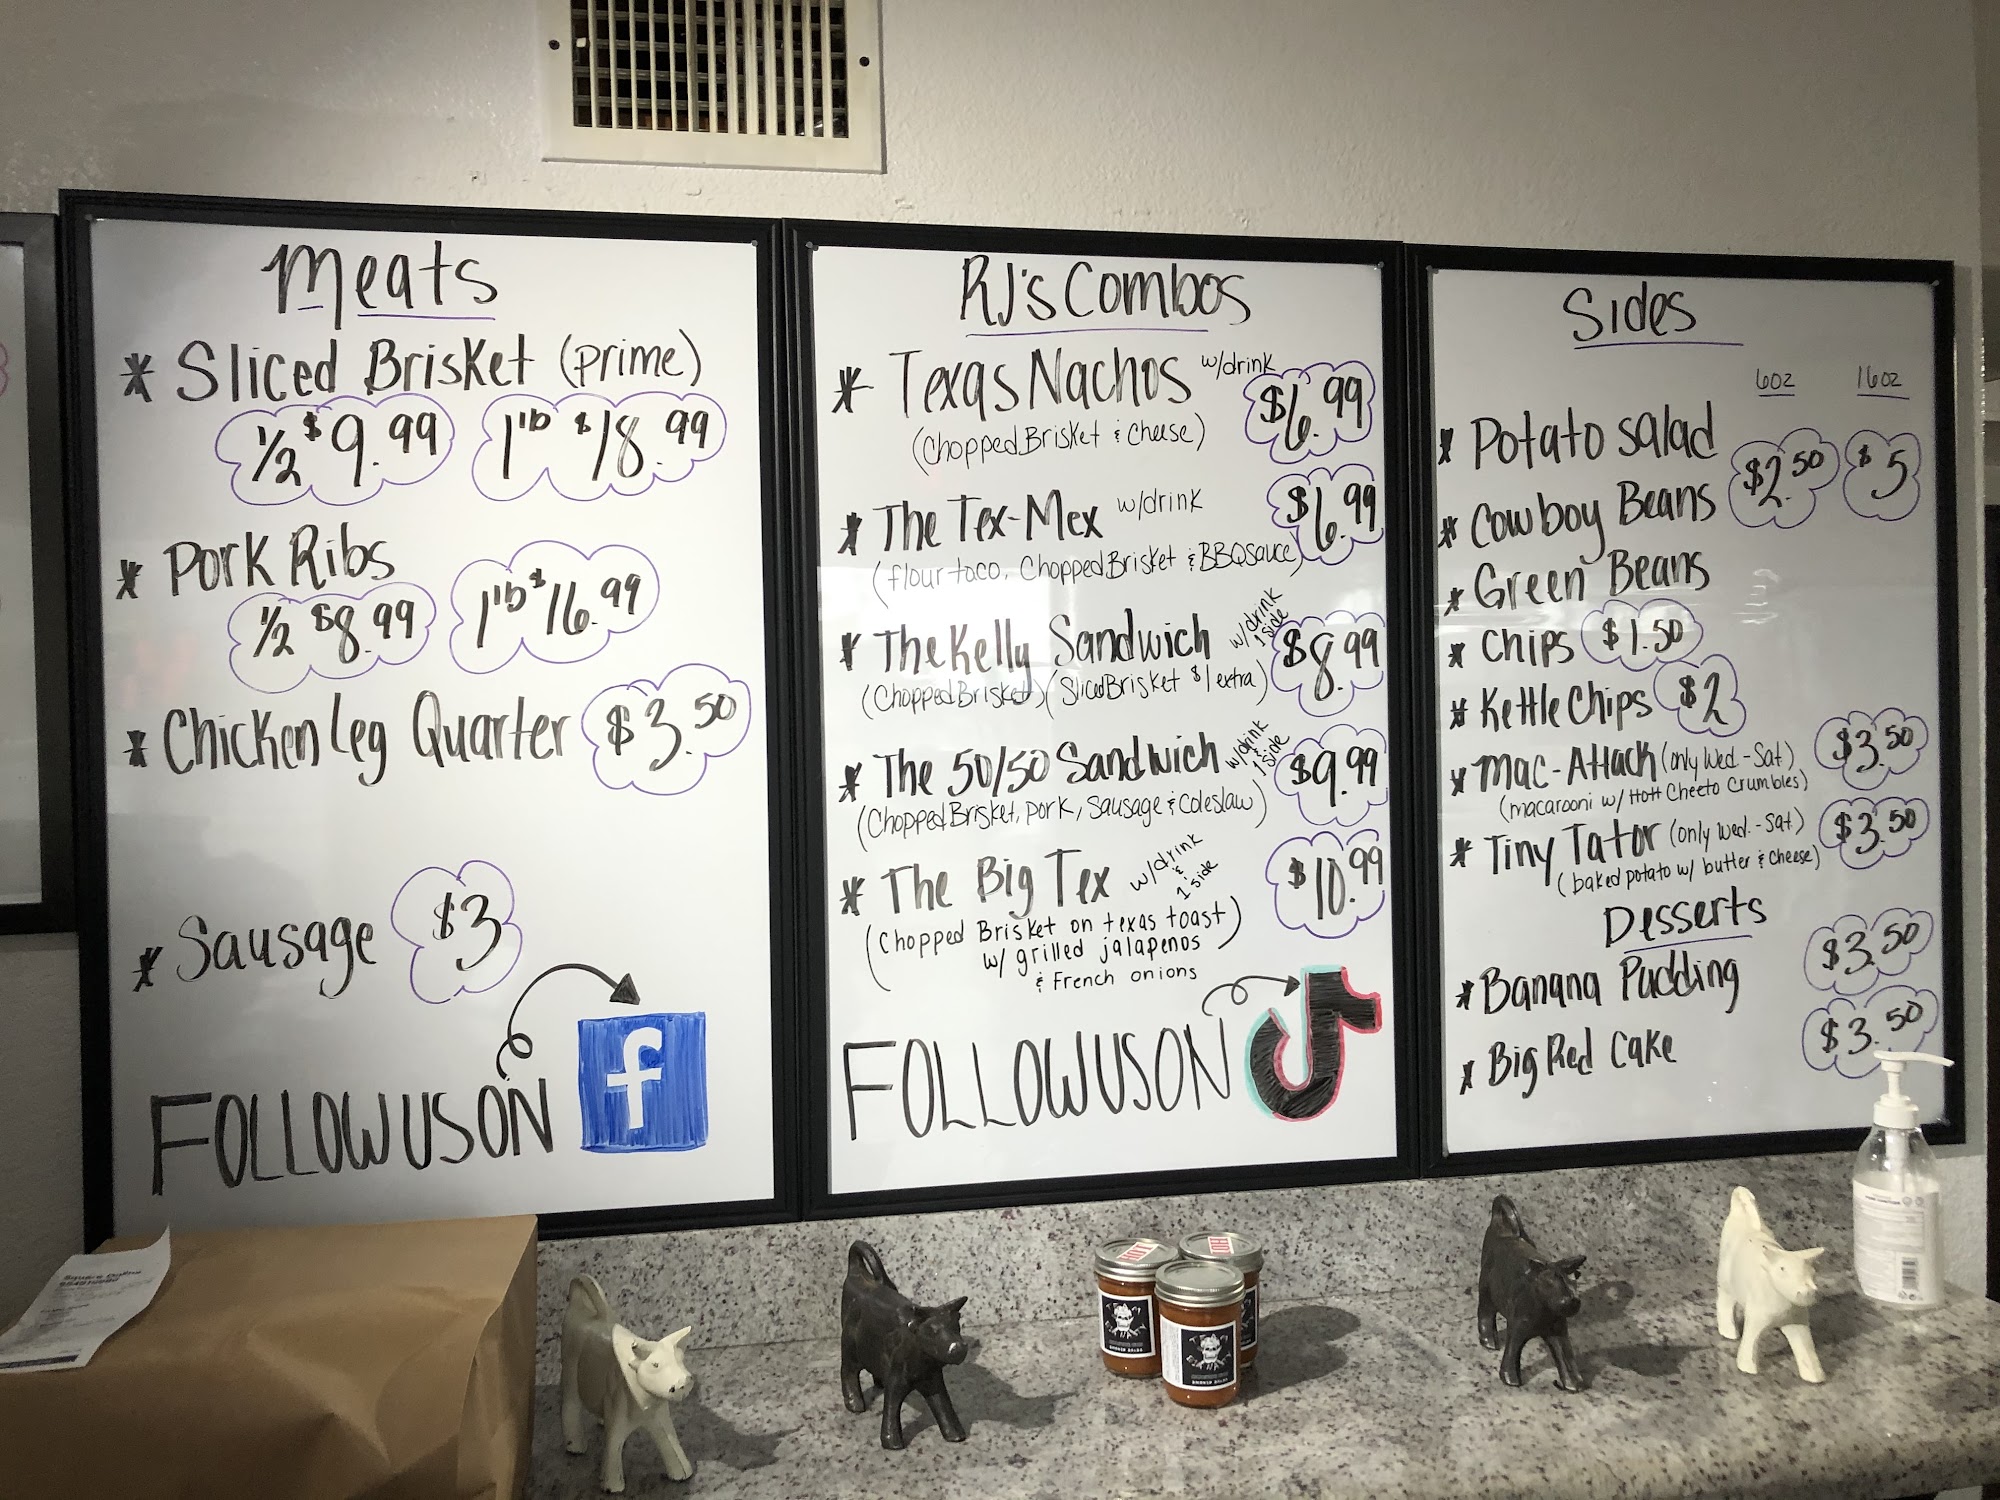 Meats
* Sliced Brisket (prime)
1/2 $9.99 1lb $18.99
* Pork Ribs
1/2 $8.99 1lb $16.99
* Chicken Leg Quarter $3.50
* Sausage $3
FOLLOW US ON f
RJ's Combos
* Texas Nachos w/drink $6.99
(Chopped Brisket & Cheese)
* The Tex-Mex w/drink $6.99
(flour taco, Chopped Brisket & BBQ sauce)
* The Kelly Sandwich w/drink 1 side $8.99
(Chopped Brisket) (Sliced Brisket $1 extra)
* The 50/50 Sandwich w/drink & 1 side $9.99
(Chopped Brisket, Pork, Sausage & Coleslaw)
* The Big Tex w/drink & 1 side $10.99
(Chopped Brisket on texas toast)
w/ grilled jalapenos
& French onions
FOLLOW US ON
Sides
6oz 16oz
* Potato Salad
* Cowboy Beans $2.50 $5
* Green Beans
* Chips $1.50
* Kettle Chips $2
* Mac-Attack (only Wed.-Sat) $3.50
(macarooni w/ Hott Cheeto Crumbles)
* Tiny Tator (only Wed.-Sat) $3.50
(baked potato w/ butter & cheese)
Desserts
* Banana Pudding $3.50
* Big Red Cake $3.50